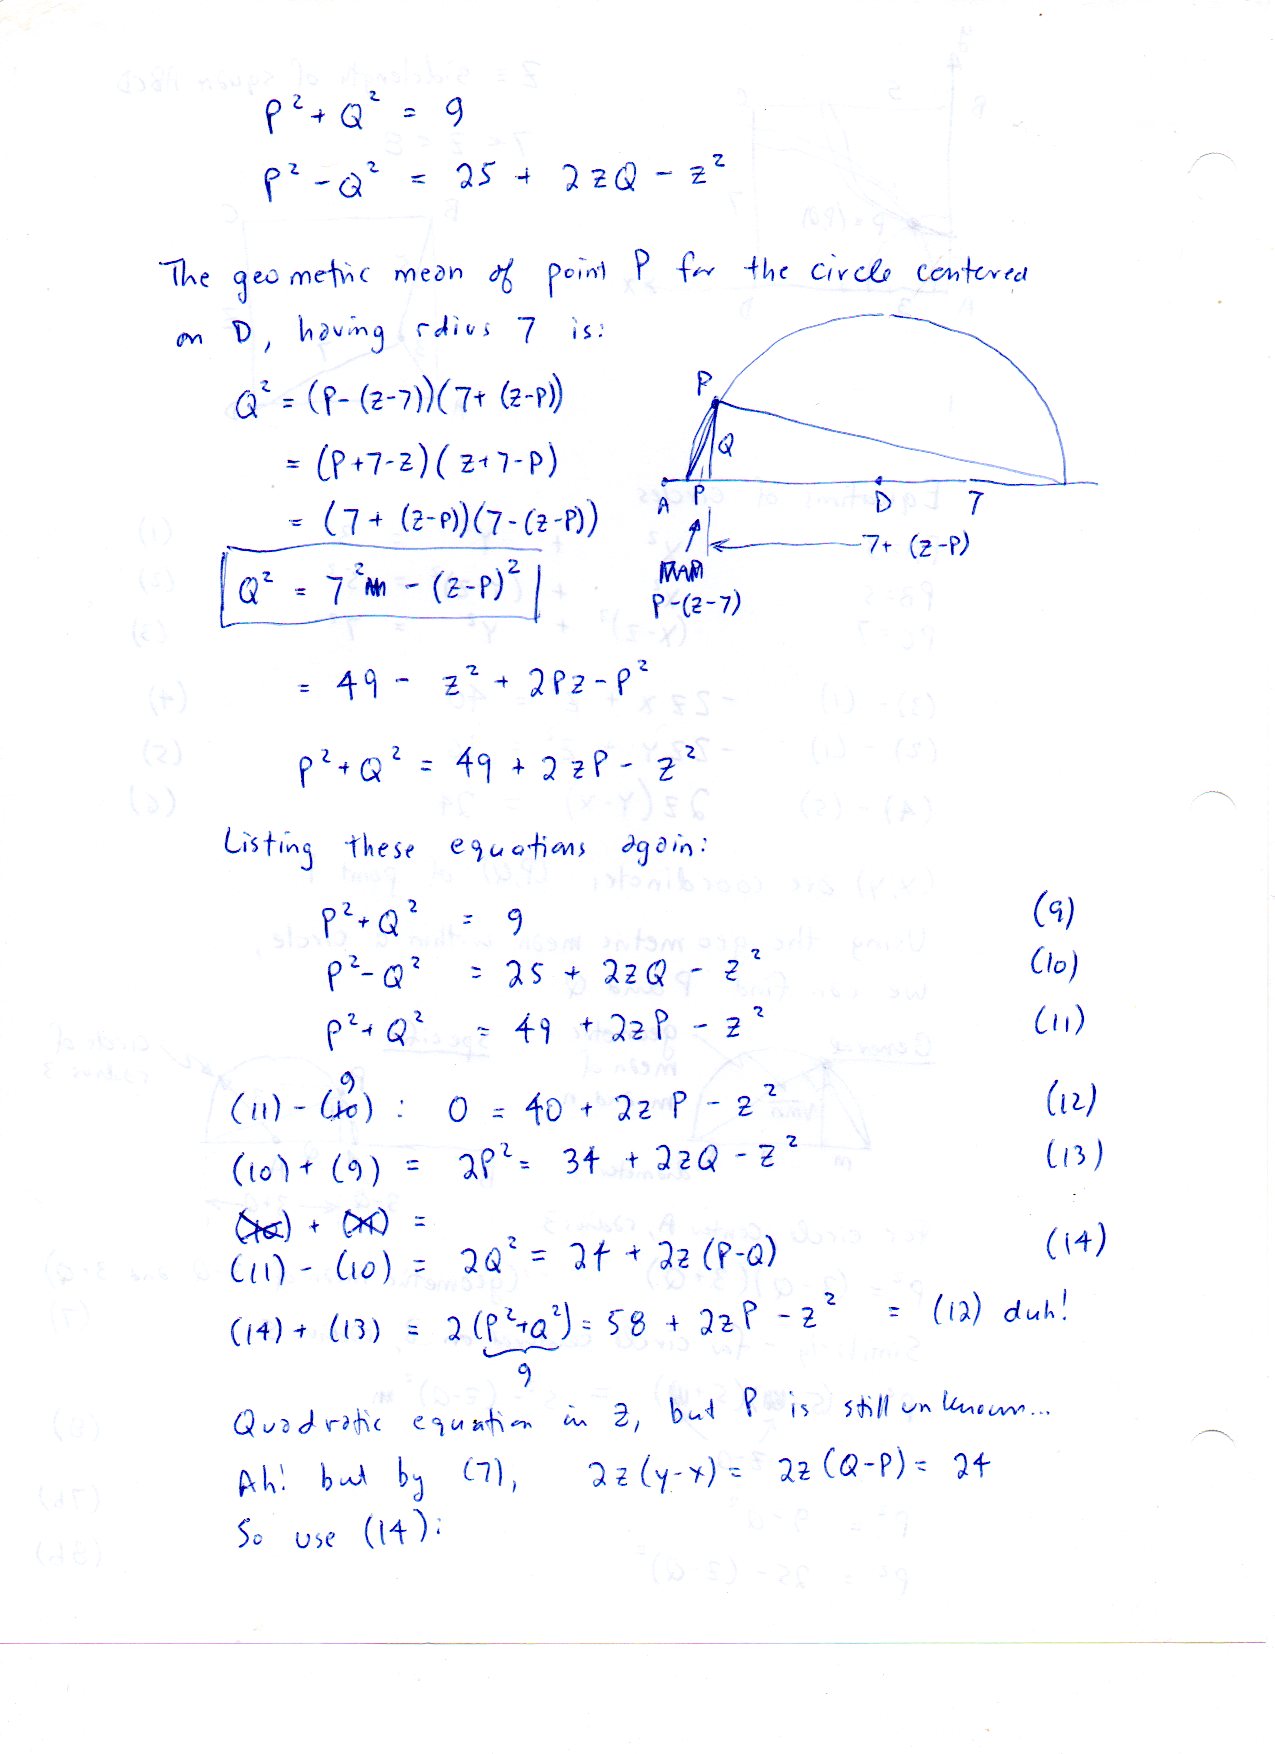 P² + Q² = 9
P² - Q² = 25 + 2zQ - z²
The geometric mean of point P for the circle centered
on D, having rdius 7 is:
Q² = (P-(z-7))(7+(z-P))
= (P+7-z)(z+7-P)
= (7+(z-P))(7-(z-P))
Q² = 7² - (z-P)²
P
Q
A P D 7
7+ (z-P)
P-(z-7)
= 49 - z² + 2Pz - P²
P² + Q² = 49 + 2zP - z²
Listing these equations again:
P² + Q² = 9 (9)
P² - Q² = 25 + 2zQ - z² (10)
P² + Q² = 49 + 2zP - z² (11)
(11) - (9) : 0 = 40 + 2zP - z² (12)
(10) + (9) = 2P² = 34 + 2zQ - z² (13)
+ =
(11) - (10) = 2Q² = 24 + 2z(P-Q) (14)
(14) + (13) = 2(P²+Q²) = 58 + 2zP - z² = (12) duh!
9
Quadratic equation in z, but P is still unknown...
Ah! but by (7), 2z(y-x) = 2z(Q-P) = 24
So use (14):